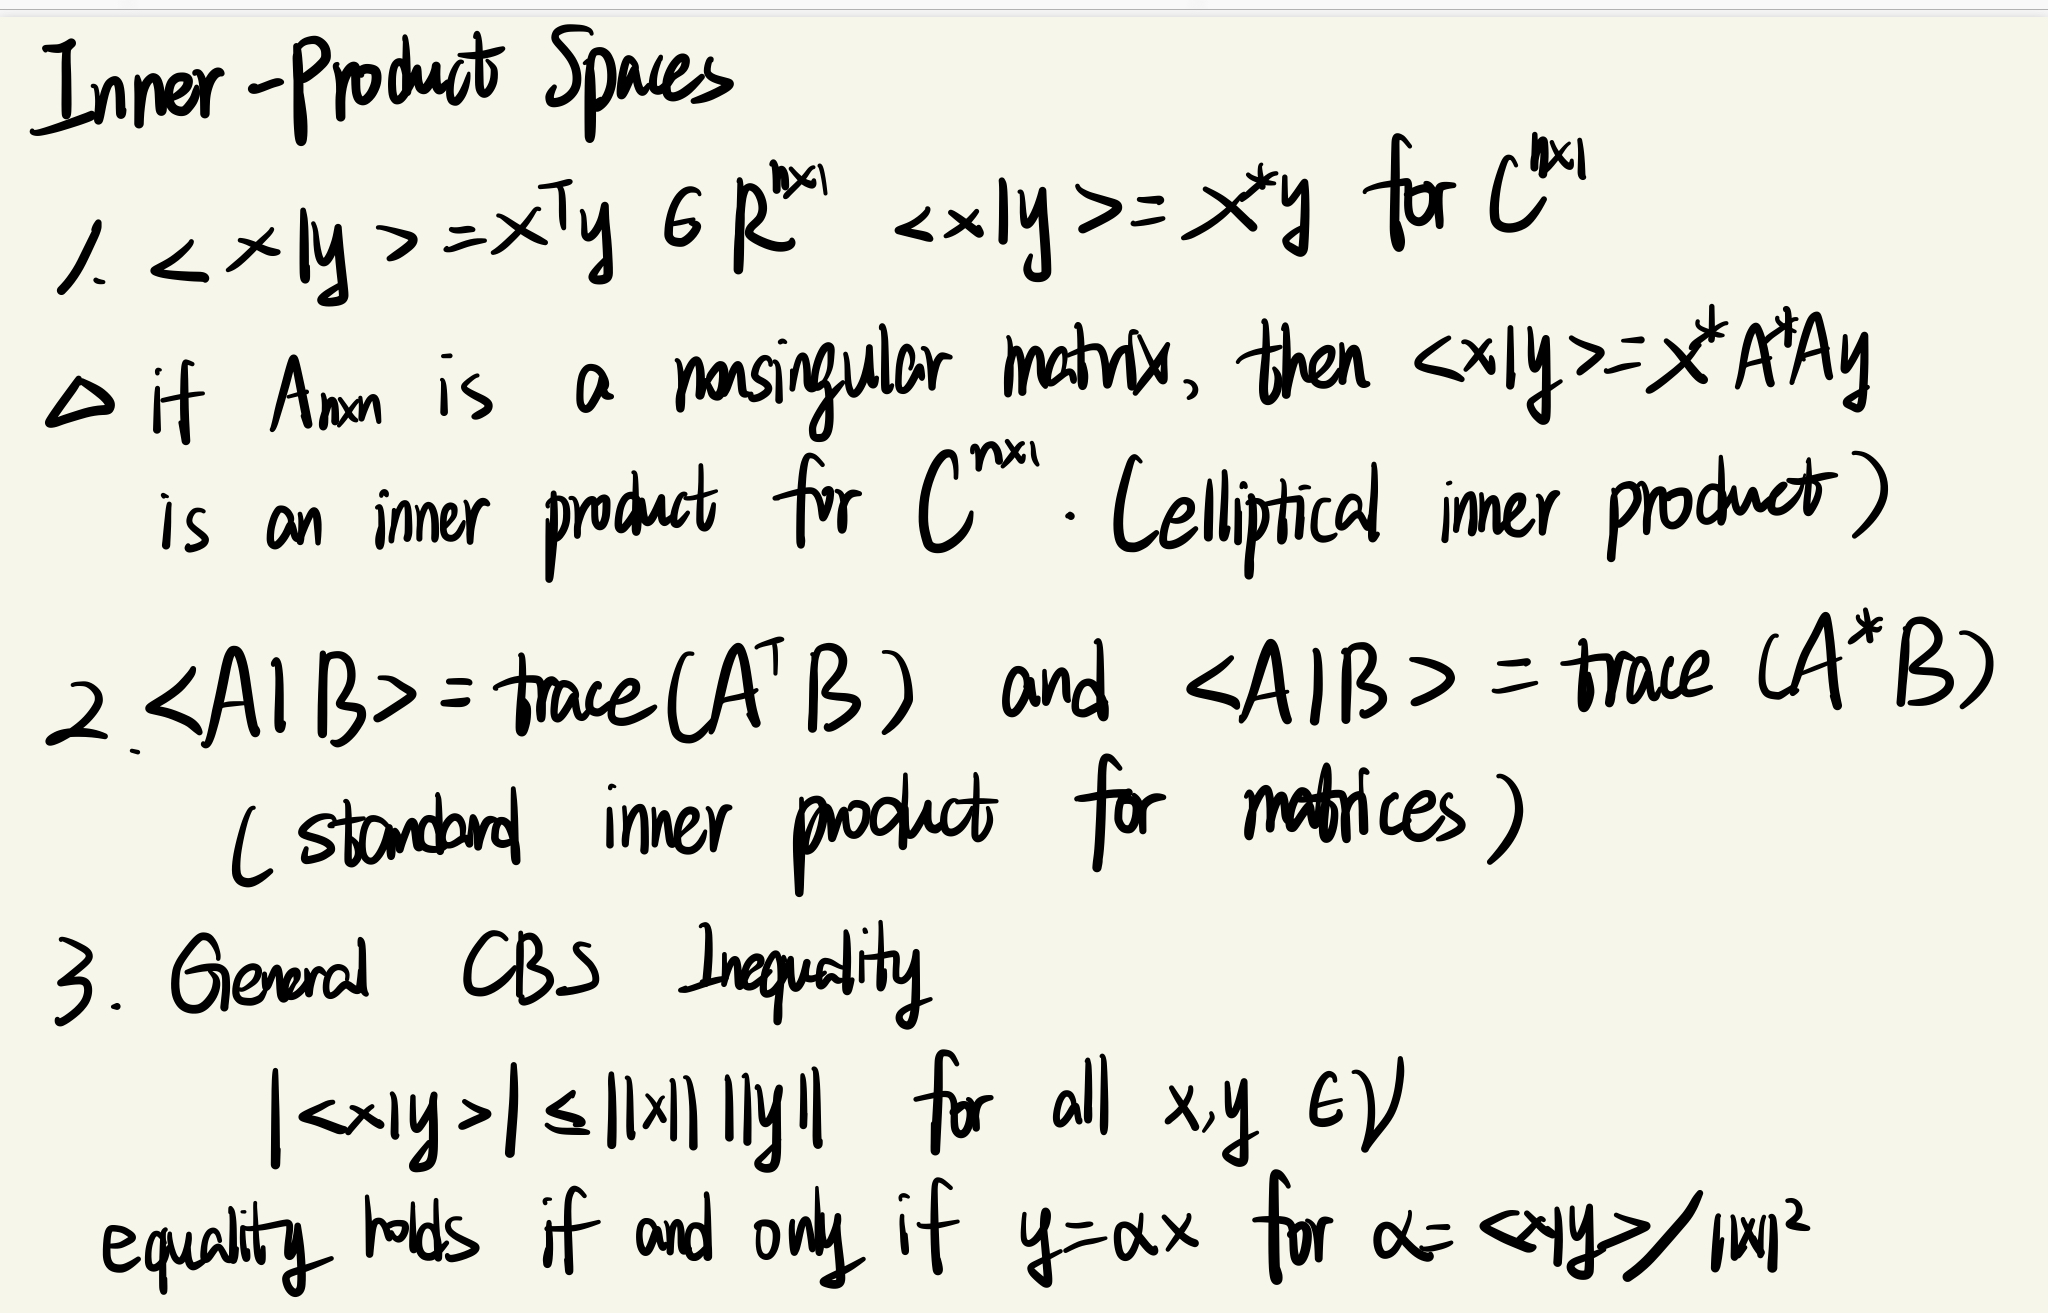 Inner-Product Spaces
1. <x|y>=xᵀy ∈ Rⁿˣ¹ <x|y>=x*y for Cⁿˣ¹
△ if Aₙₓₙ is a nonsingular matrix, then <x|y>=x*A*Ay
is an inner product for Cⁿˣ¹. (elliptical inner product)
2. <A|B>=trace(AᵀB) and <A|B>=trace(A*B)
(standard inner product for matrices)
3. General CBS Inequality
|<x|y>| ≤ ||x|| ||y|| for all x,y ∈ V
equality holds if and only if y=αx for α=<x|y>/||x||²